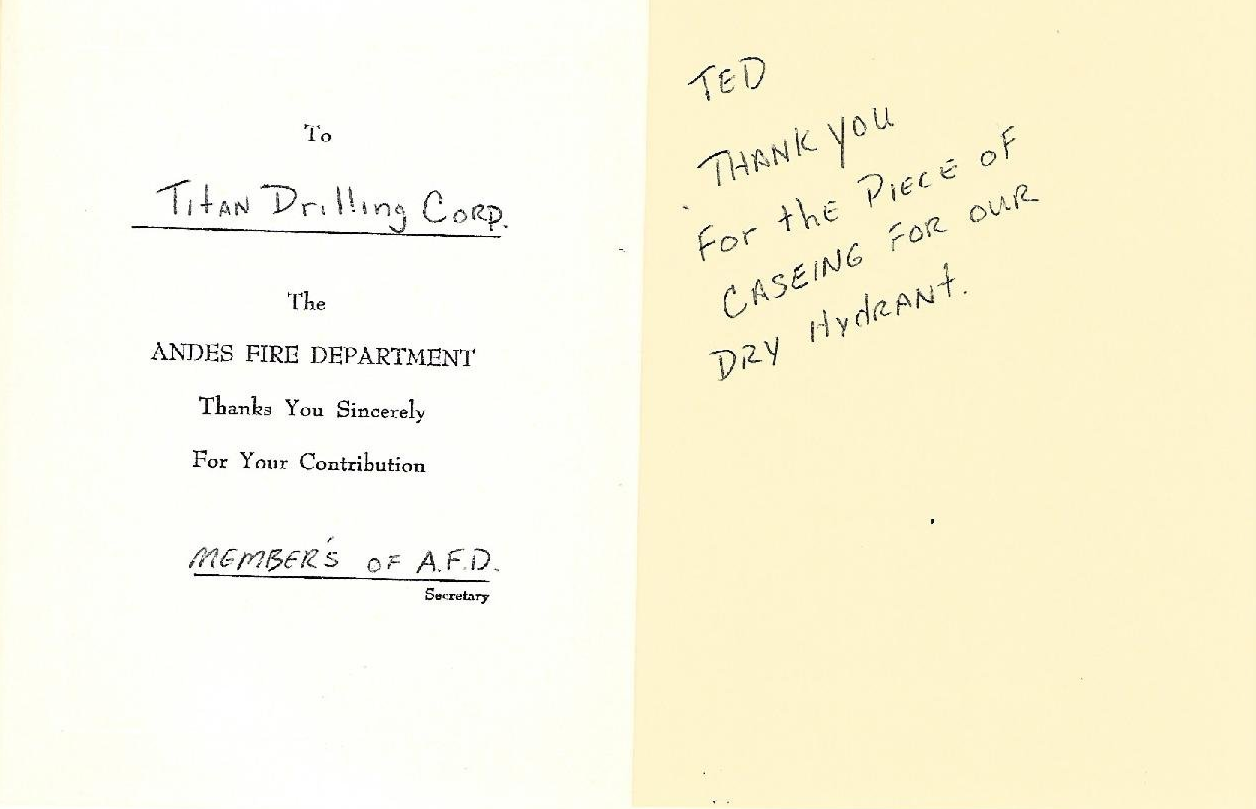 To
Titan Drilling Corp.
The
ANDES FIRE DEPARTMENT
Thanks You Sincerely
For Your Contribution
MEMBER'S OF A.F.D.
Secretary
TED
THANK YOU
For the PIECE OF
CASEING FOR OUR
DRY HydRANt.